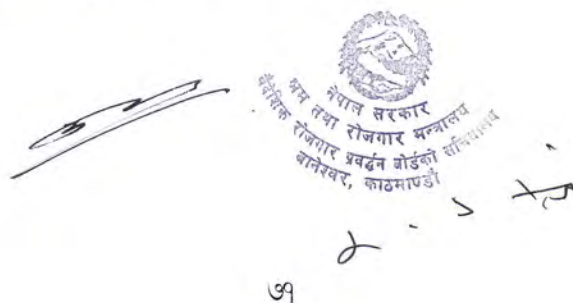 नेपाल सरकार
श्रम तथा रोजगार मन्त्रालय
वैदेशिक रोजगार प्रवर्द्धन बोर्डको सचिवालय
बानेश्वर, काठमाण्डौ
७१